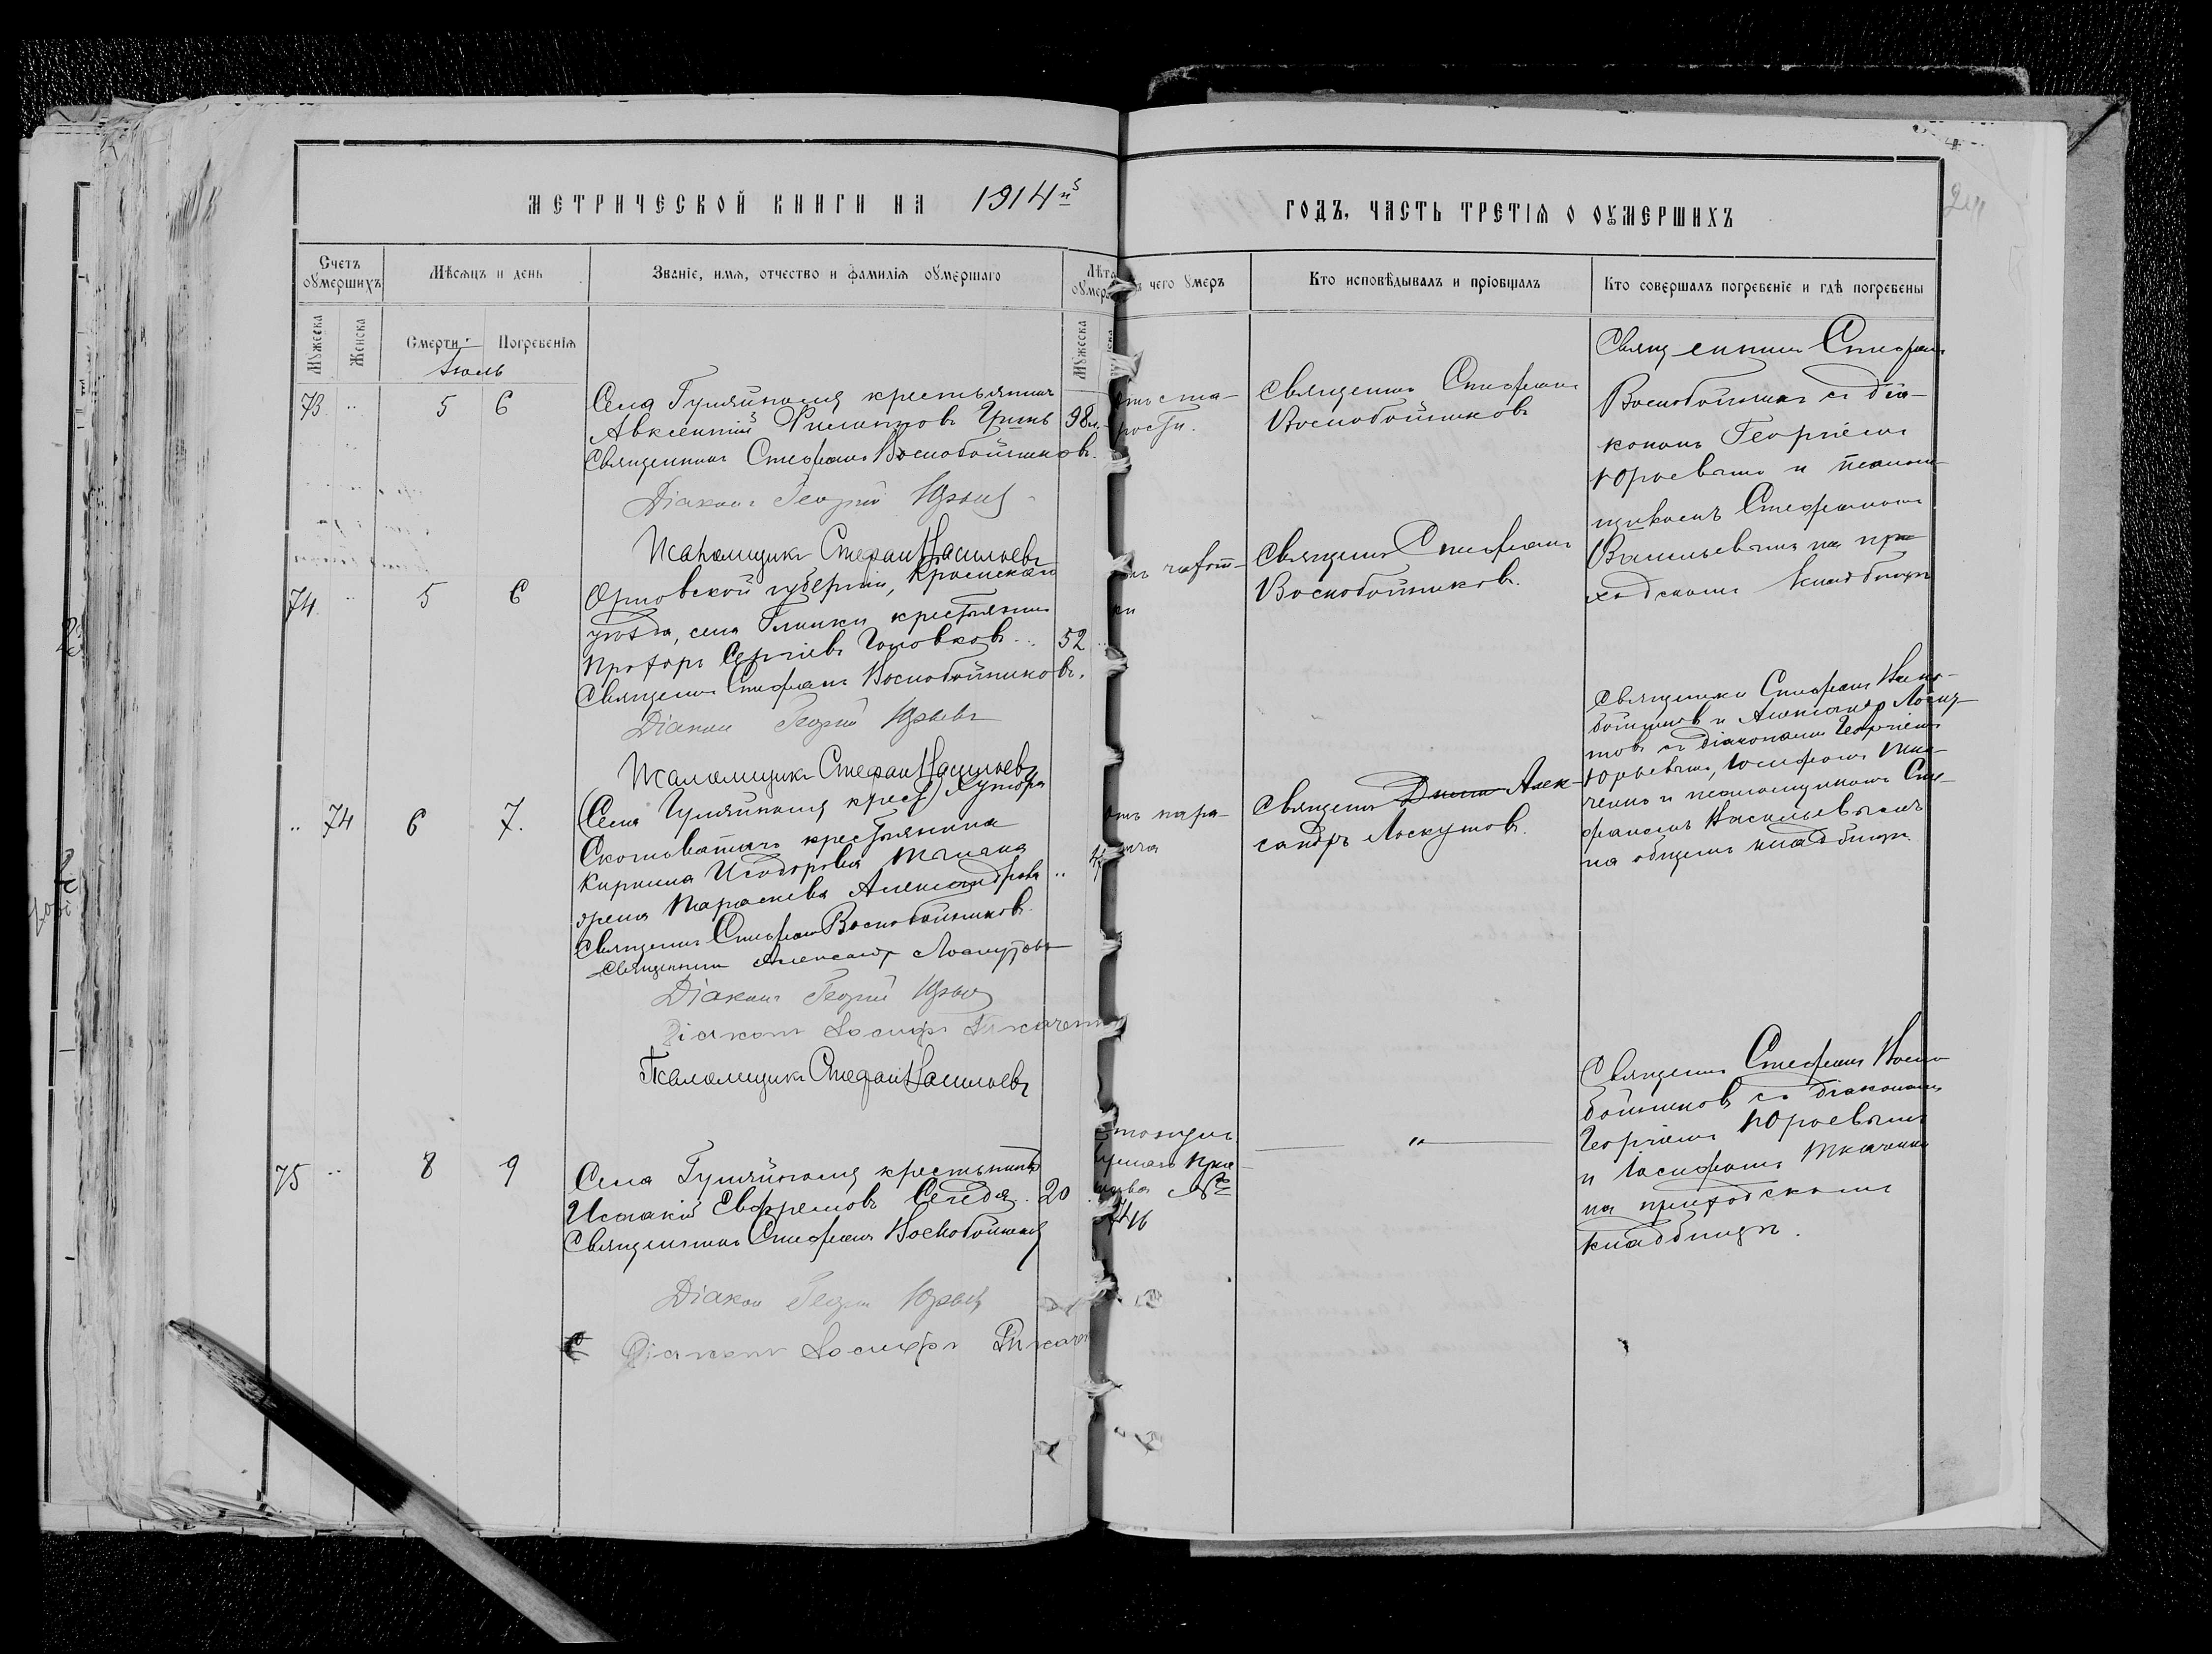 МЕТРИЧЕСКОЙ КНИГИ НА 1914й
ГОДЪ, ЧАСТЬ ТРЕТІѦ О ОУМЕРШИХЪ
Счетъ оумершихъ
Мѣсѧцъ и день
Званіе, имѧ, отчество и фамиліѧ оумершаго
Лѣта
оумер
чего Умеръ
Кто исповѣдывалъ и пріобщалъ
Кто совершалъ погребеніе и гдѣ погребены
Мужеска
Женска
Смерти
Погребеніѧ
Мужеска
Іюль
73
5
6
Села Гуляйполя крестьянинъ
Авксентій Филиповъ
98 л.
Священникъ Стефанъ Воскобойниковъ.
Діаконъ Георгій Юрьев
Псаломщикъ Стефанъ Васильевъ
отъ ста-
рости.
Священникъ Стефанъ
Воскобойниковъ
Священникъ Стефанъ
Воскобойниковъ съ діа-
кономъ Георгіемъ
Юрьевымъ и псалом-
щикомъ Стефаномъ
Васильевымъ на при-
ходскомъ кладбищѣ
74
5
6
Орловской губерніи, Кромскаго
уѣзда, села Глинки крестьянинъ
Прохоръ Сергіевъ Головковъ
52
Священникъ Стефанъ Воскобойниковъ.
Діаконъ Георгій Юрьевъ
Псаломщикъ Стефанъ Васильевъ
отъ чахот-
ки
Священникъ Стефанъ
Воскобойниковъ.
74
6
7.
(Села Гуляйполя крест) Хутора
Скотоватаго крестьянина
Кирилла Исидорова
жена Параскева Александрова
Священникъ Стефанъ Воскобойниковъ.
Священникъ Александръ Лоскутовъ
Діаконъ Георгій Юрьев
Діаконъ Іосифъ Ткаченко
Псаломщикъ Стефанъ Васильевъ
отъ пара-
лича
Священникъ Алек-
сандръ Лоскутовъ.
Священники Стефанъ Воско-
бойниковъ и Александръ Лоску-
товъ съ діаконами Георгіемъ
Юрьевымъ, Іосифомъ Тка-
ченко и псаломщикомъ Сте-
фаномъ Васильевымъ
на общемъ кладбищѣ.
75
8
9
Села Гуляйполя крестьянинъ
Исаакій Евфремовъ
20
Священникъ Стефанъ Воскобойников
Діаконъ Георгій Юрьев
Діаконъ Іосифъ Ткачен
№
„
Священникъ Стефанъ Воско-
бойниковъ съ діаконами
Георгіемъ Юрьевымъ
и Іосифомъ Ткаченко
на приходскомъ
кладбищѣ.